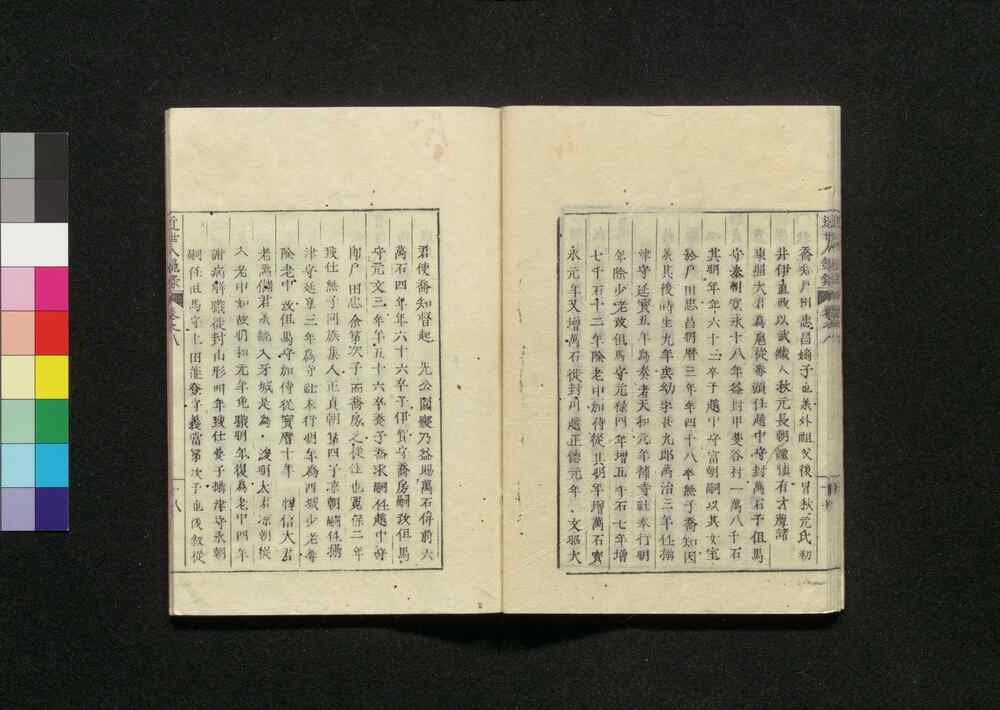 喬知戸田忠昌嫡子也為外祖父後冒秋元氏初
井伊直政以武蔵人秋元長朝謹慎有才薦諸
東照大君為扈従番頭任越中守封萬石子但馬
守泰朝寛永十八年益封甲斐谷村一萬八千石
其明年年六十三卒于越中守富朝嗣以其女室
於戸田忠昌明暦三年年四十八卒無子喬知因
為其後時生九年矣幼字甚九郎萬治三年任摂
津守延寶五年為奏者天和元年補寺社奉行明
年除少老改但馬守元禄四年増五千石七年増
七千石十二年除老中加侍従其明年増萬石寶
永元年又増萬石徙封川越正徳元年文昭大
君使喬知督起 先公閟寝乃益賜萬石併前六
萬石四年年六十六卒子伊賀守喬房嗣改但馬
守元文三年年五十六卒養子喬求嗣任越中守
即戸田忠余第次子而喬房之従姓也寛保二年
致仕無子同族隼人正貞朝第四子凉朝嗣任摂
津守延享三年為寺社奉行明年為西城少老尋
除老中改但馬守加侍従寶暦十年 惇信大君
老焉儲君承統入牙城是為 浚明大君凉朝従
入老中如故明和元年免職明年復為老中四年
謝病辞職徙封山形明年致仕養子摂津守永朝
嗣任但馬守上田淮登守義當第次子也後叙従
近世人鏡録 巻之八
十八